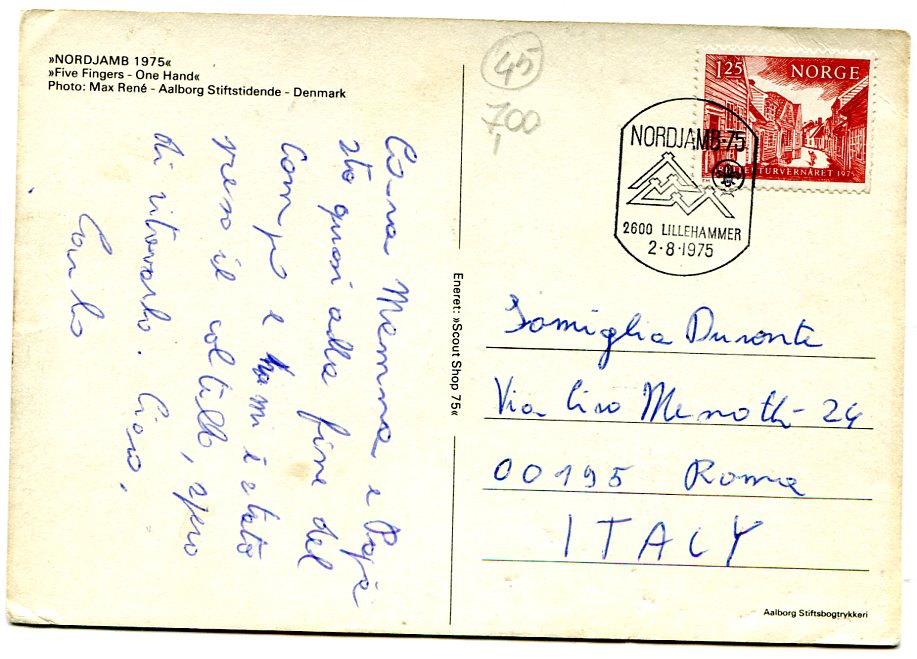 »NORDJAMB 1975«
»Five Fingers - One Hand«
Photo: Max René - Aalborg Stiftstidende - Denmark
45
700
1.25 NORGE
TURVERNÅRET 1975
NORDJAMB-75
2600 LILLEHAMMER
2-8-1975
Cara Mamma e Papà
sto quasi alla fine del
Campo e mi è stato
preso il coltello, spero
di ritovarlo. Ciao,
Carlo
Eneret: »Scout Shop 75«
Famiglia Durante
Via Ciro Menotti 24
00195 Roma
ITALY
Aalborg Stiftsbogtrykkeri